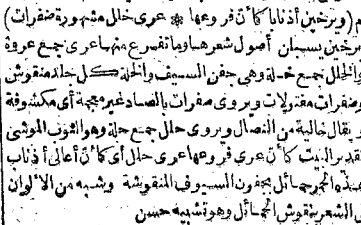 م (ويرخين أذنابا كأن فروعها * عرى خلل مشهورة ضفرات)
يرخين يسبلن أصول شعرها وما تفرع منها عرى جمع عروة
والخلل جمع خلة وهى جفن السيف والخلة كل جلد منقوش
ضفرات مفتولات ويروى صفرات بالصاد غير معجمة أى مكشوفة
ويقال خالية من النصال ويروى حلل جمع حلة وهو الثوب الموشى
تقدير البيت كأن عرى فروعها عرى خلل أى كأن أعالى أذناب
هذه الحمر حمائل بجفون السيوف المنقوشة وشبه من الألوان
فى الشعر بنقوش الحمائل وهو تشبيه حسن